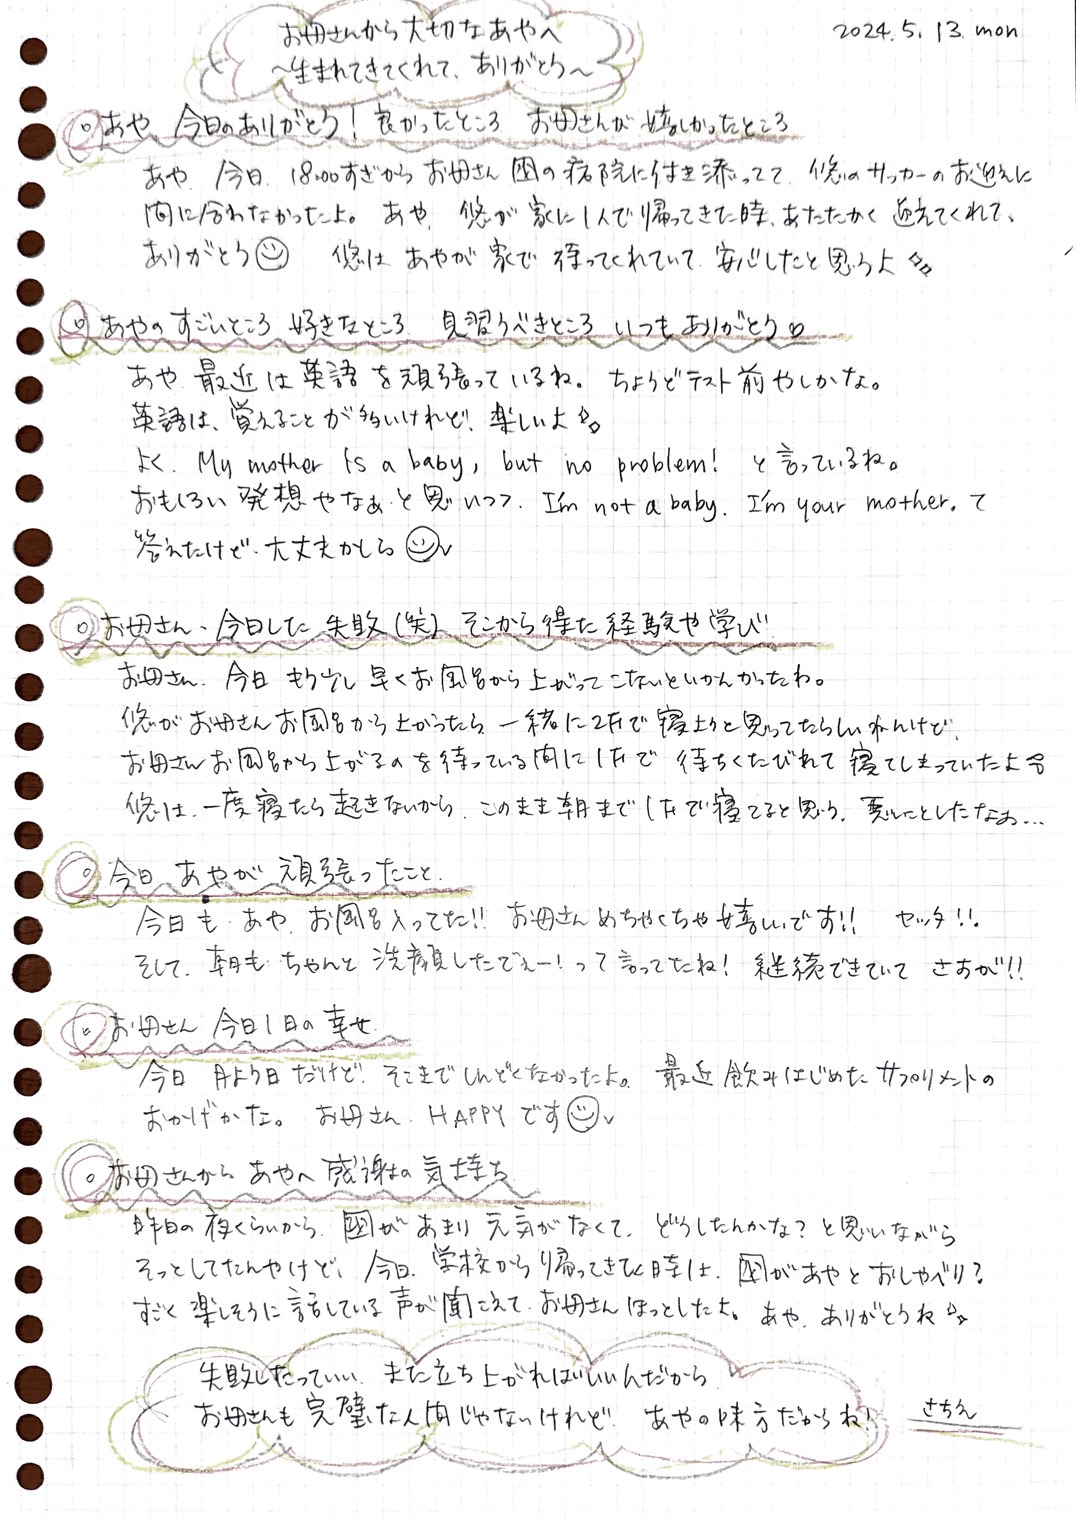 2024.5.13.mon
お母さんから大切なあやへ
〜生まれてきてくれて、ありがとう〜
あや 今日のありがとう! 良かったところ お母さんが嬉しかったところ
あや、今日、18:00すぎからお母さん 囲の病院に付き添ってて、悠のサッカーのお迎えに
間に合わなかったよ。あや、悠が家に1人で帰ってきた時、あたたかく迎えてくれて、
ありがとう 悠は あやが家で待ってくれていて、安心したと思うよ
あやの すごいところ 好きなところ 見習うべきところ いつもありがとう
あや、最近は英語を頑張っているね。ちょうどテスト前やしかな。
英語は、覚えることが多いけれど、楽しいよ
よく、My mother is a baby, but no problem! と言っているね。
おもしろい発想やなぁ、と思いつつ、I'm not a baby. I'm your mother. て
答えたけど、大丈夫かしら
お母さん、今日した失敗(笑)、そこから得た経験や学び
お母さん、今日 もう少し早くお風呂から上がってこないといかんかったわ。
悠がお母さんお風呂から上がったら、一緒に2Fで寝ようと思ってたらしいねんけど、
お母さんお風呂から上がるのを待っている間に1Fで 待ちくたびれて寝てしまっていたよ
悠は、一度寝たら起きないから、このまま朝まで1Fで寝てると思う。悪いことしたなぁ…
今日 あやが 頑張ったこと
今日も、あや、お風呂入ってた!! お母さんめちゃくちゃ嬉しいです!! ヤッタ!!
そして、朝も ちゃんと 洗顔したでぇー!って言ってたね! 継続できていて さすが!!
お母さん 今日1日の幸せ
今日 月よう日だけど、そこまでしんどくなかったよ。最近飲みはじめたサプリメントの
おかげかな。お母さん、HAPPYです
お母さんから あやへ 感謝の気持ち
昨日の夜くらいから、囲があまり元気がなくて、どうしたんかな?と思いながら
そっとしてたんやけど、今日、学校から帰ってきた時は、囲があやとおしゃべり?
すごく楽しそうに話している声が聞こえて、お母さんほっとしたよ。あや、ありがとうね
失敗したっていい、また立ち上がればいいんだから
お母さんも完璧な人間じゃないけれど、あやの味方だからね!
さちえ